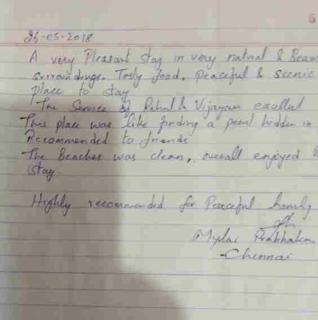 26-05-2018
A very Pleasant stay in very natural &
surroundings. Tasty food, peaceful & scenic
place to stay
The Service of & Vijayan excellent
This place was like finding a pearl hidden in
Recommended to friends
The Beaches was clean, overall enjoyed
stay
Highly recommended for Peaceful
Mylai Prabhakaran
-Chennai